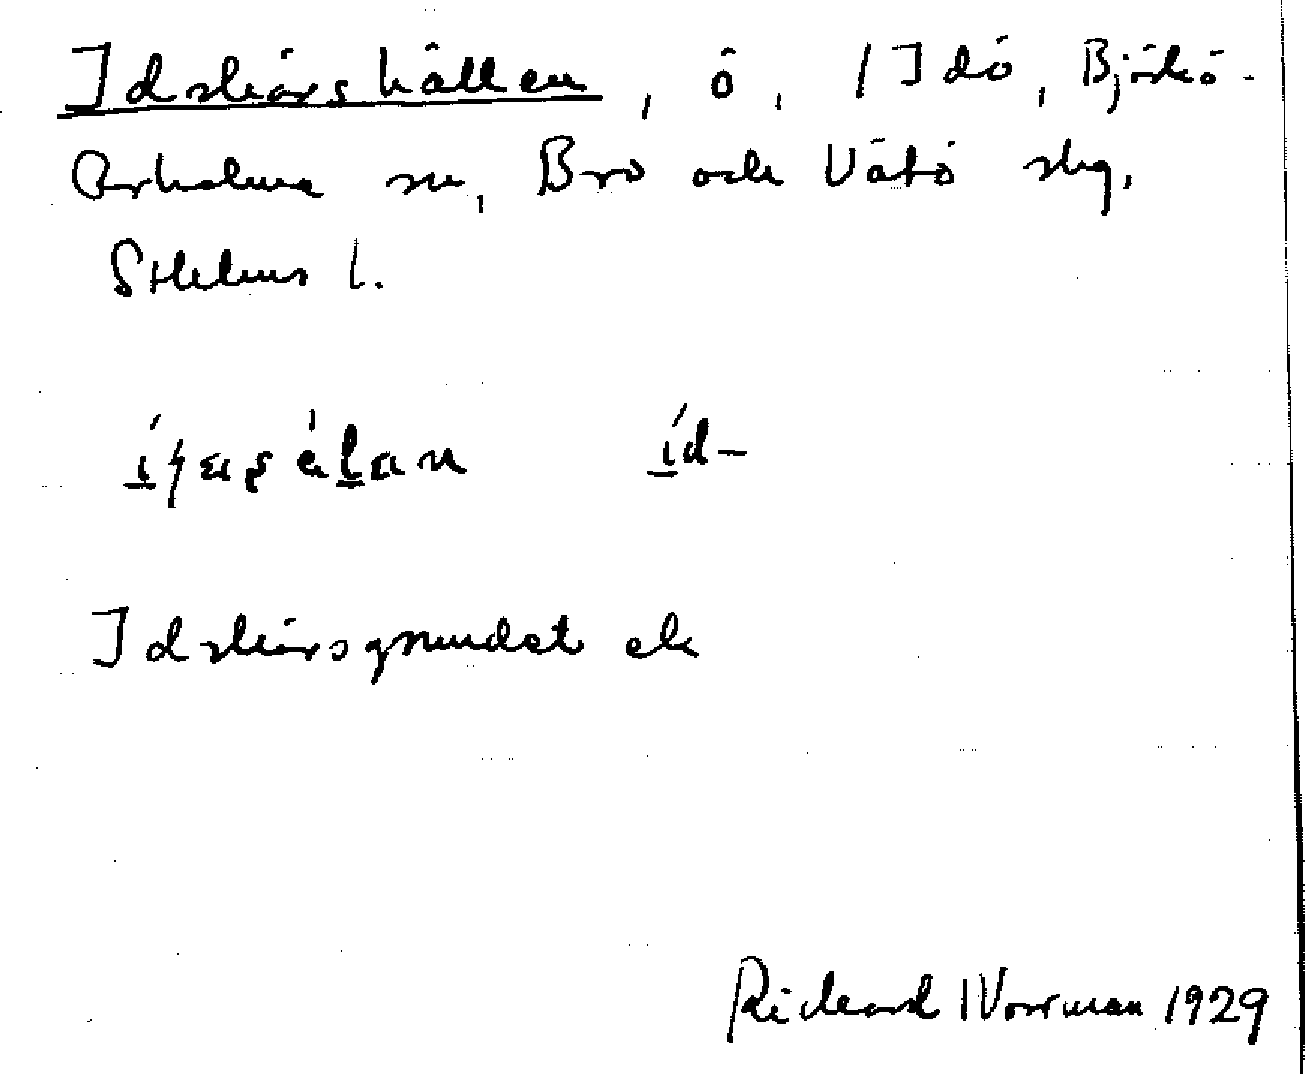 Idskärshällen, ö, / Idö, Björkö-
Arholma sn, Bro och Vätö skg,
Sthlms l.
íd-
Idskärsgrundet
Richard Norrman 1929